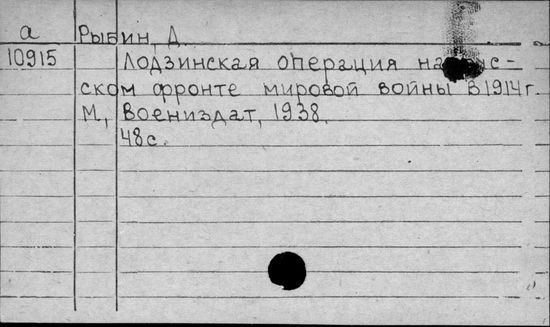 а Рыбин, Д.
10915 Лодзинская операция на рус-
ском фронте мировой войны в 1914 г.
М., Воениздат, 1938.
48 с.